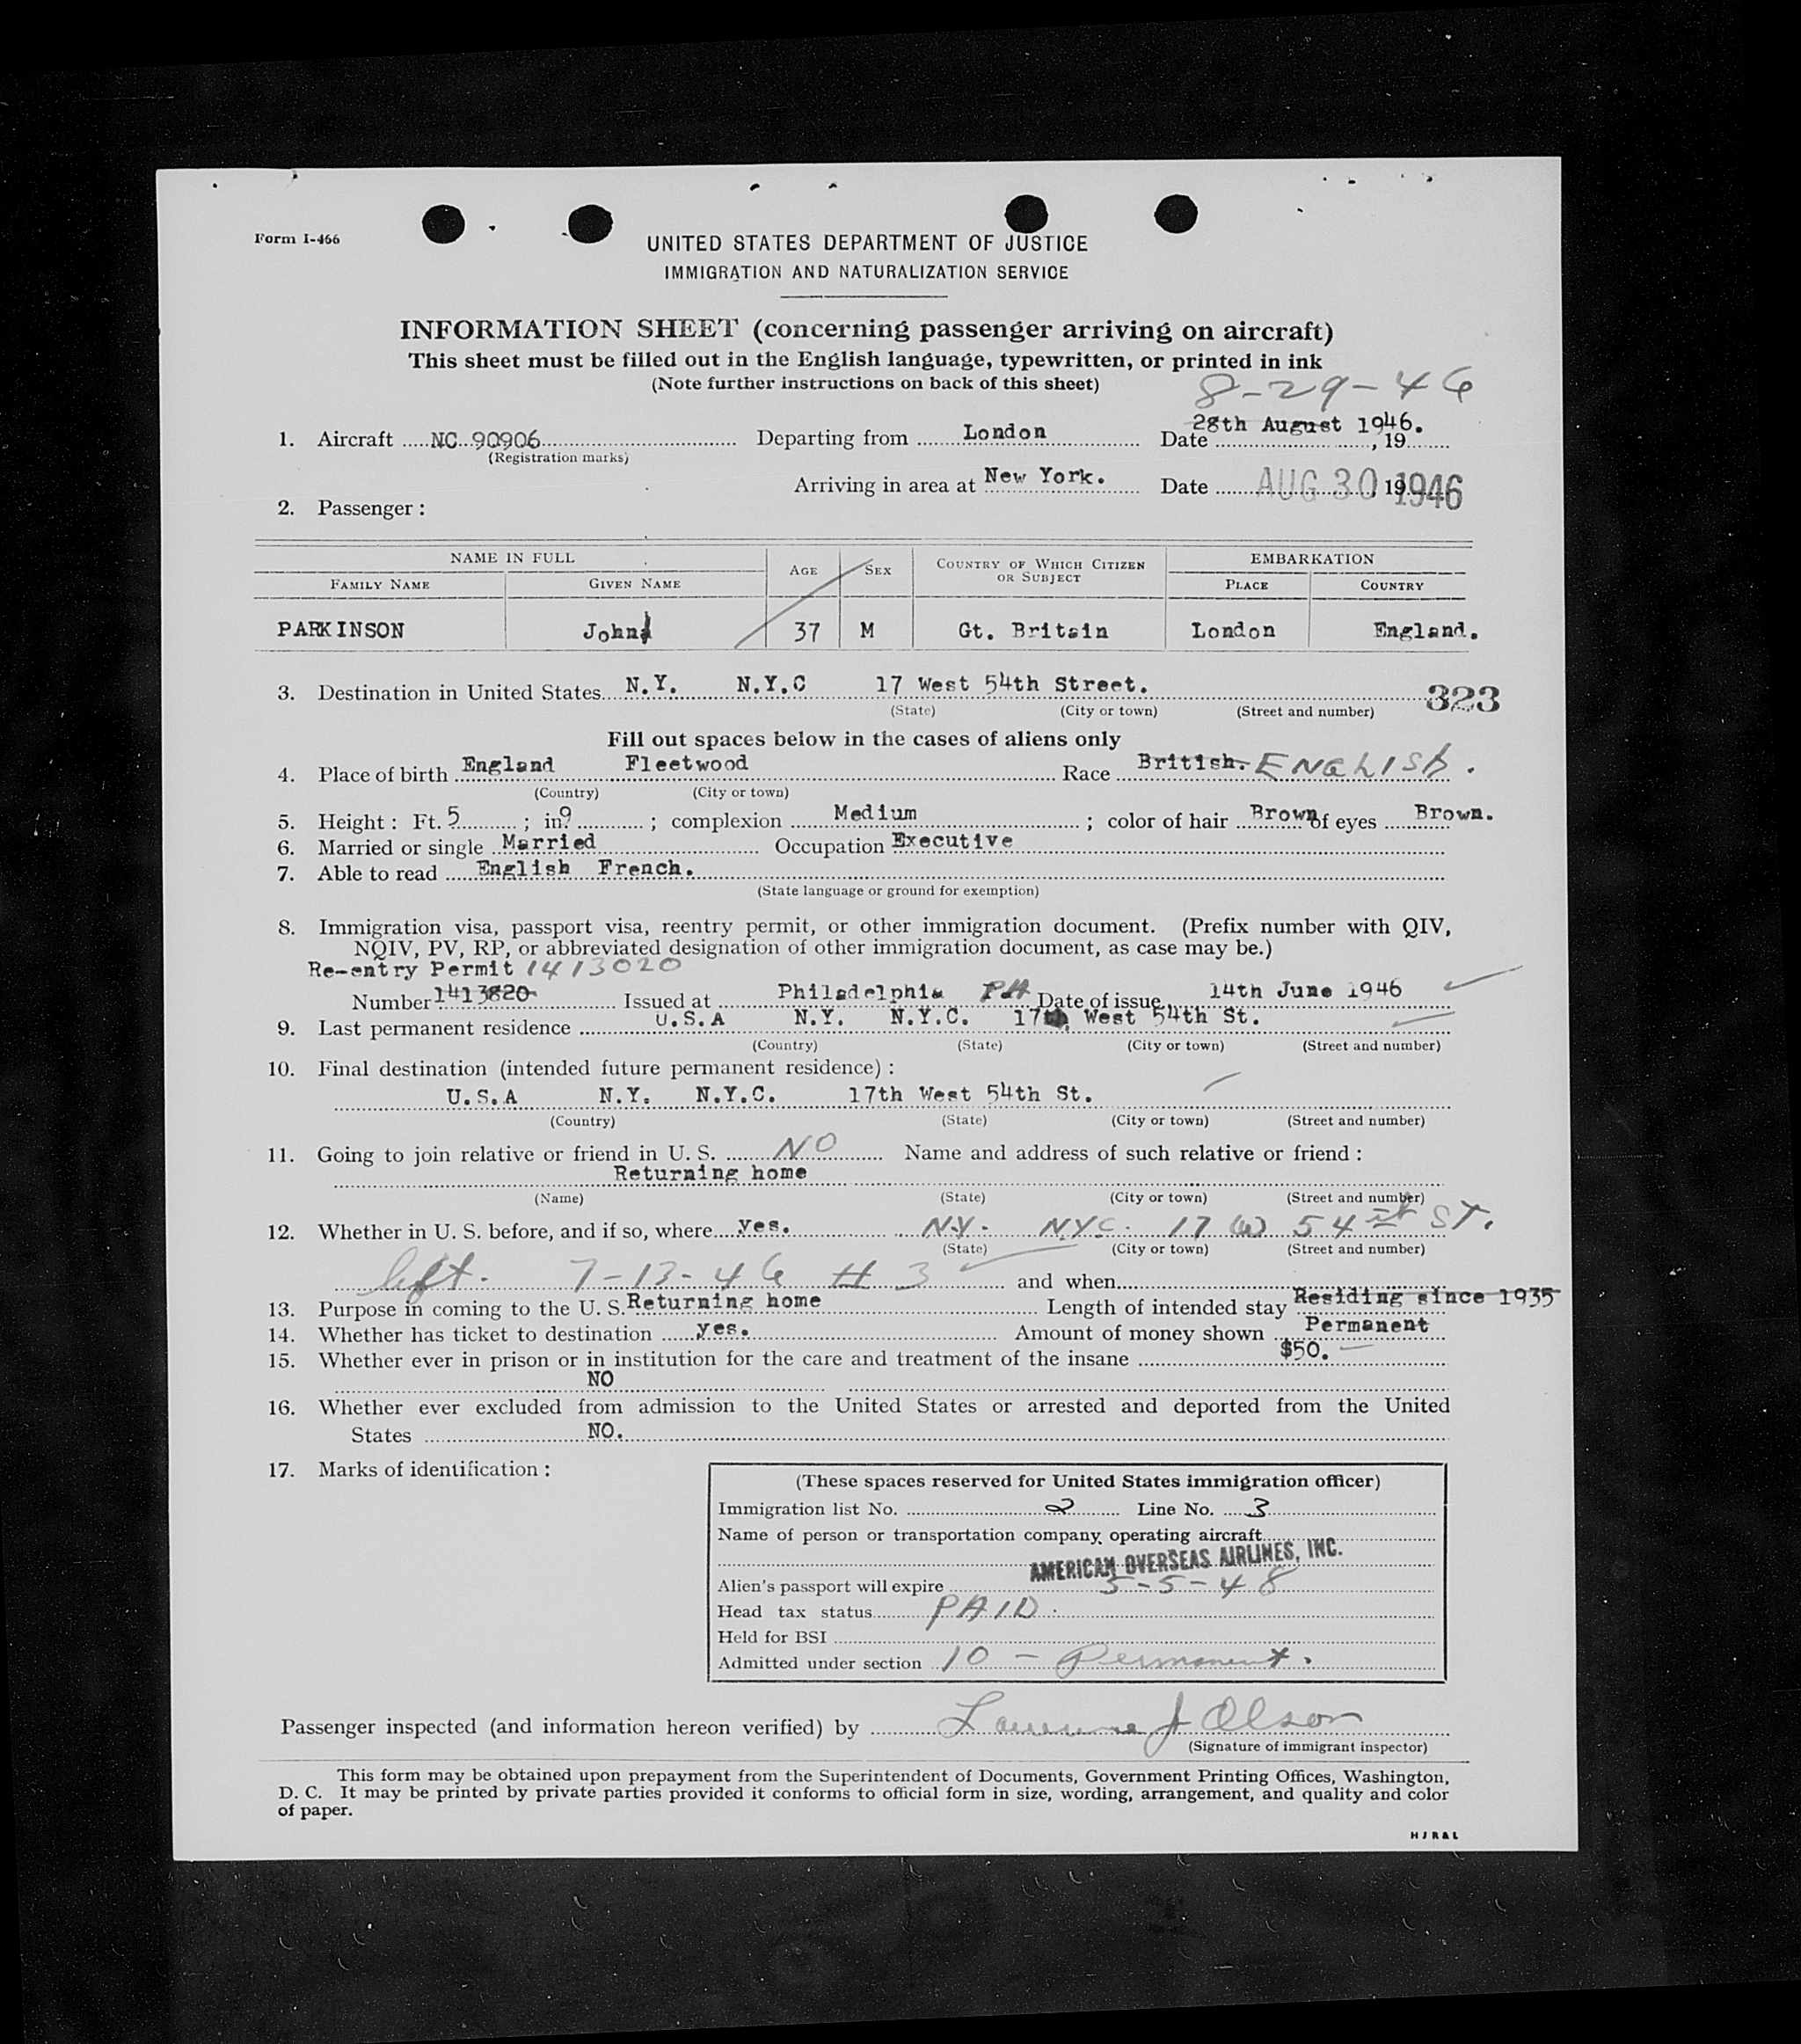 Form I-466
UNITED STATES DEPARTMENT OF JUSTICE
IMMIGRATION AND NATURALIZATION SERVICE
INFORMATION SHEET (concerning passenger arriving on aircraft)
This sheet must be filled out in the English language, typewritten, or printed in ink
(Note further instructions on back of this sheet)
8-29-46
1. Aircraft NC 90906 Departing from London Date 28th August 1946. , 19
(Registration marks)
Arriving in area at New York. Date AUG 30 1946 , 19
2. Passenger :
NAME IN FULL AGE SEX COUNTRY OF WHICH CITIZEN OR SUBJECT EMBARKATION
FAMILY NAME GIVEN NAME PLACE COUNTRY
PARKINSON John 37 M Gt. Britain London England.
3. Destination in United States N.Y. N.Y.C 17 West 54th Street. 323
(State) (City or town) (Street and number)
Fill out spaces below in the cases of aliens only
4. Place of birth England Fleetwood Race British. ENGLISH.
(Country) (City or town)
5. Height : Ft. 5 ; in. 9 ; complexion Medium ; color of hair Brown of eyes Brown.
6. Married or single Married Occupation Executive
7. Able to read English French.
(State language or ground for exemption)
8. Immigration visa, passport visa, reentry permit, or other immigration document. (Prefix number with QIV,
NQIV, PV, RP, or abbreviated designation of other immigration document, as case may be.)
Re-entry Permit 1413020
Number 1413820 Issued at Philadelphia PA Date of issue 14th June 1946
9. Last permanent residence U.S.A N.Y. N.Y.C. 17th West 54th St.
(Country) (State) (City or town) (Street and number)
10. Final destination (intended future permanent residence) :
U.S.A N.Y. N.Y.C. 17th West 54th St.
(Country) (State) (City or town) (Street and number)
11. Going to join relative or friend in U. S. NO Name and address of such relative or friend :
Returning home
(Name) (State) (City or town) (Street and number)
12. Whether in U. S. before, and if so, where yes. N.Y. NYC. 17 W 54th ST.
(State) (City or town) (Street and number)
left. 7-13-46 H 3 and when
13. Purpose in coming to the U. S. Returning home Length of intended stay Residing since 1935
14. Whether has ticket to destination yes. Amount of money shown Permanent
15. Whether ever in prison or in institution for the care and treatment of the insane $50.
NO
16. Whether ever excluded from admission to the United States or arrested and deported from the United
States NO.
17. Marks of identification :
(These spaces reserved for United States immigration officer)
Immigration list No. 2 Line No. 3
Name of person or transportation company operating aircraft
AMERICAN OVERSEAS AIRLINES, INC.
Alien's passport will expire 5-5-48
Head tax status PAID.
Held for BSI
Admitted under section 10 - Permanent.
Passenger inspected (and information hereon verified) by Lawrence J Olson
(Signature of immigrant inspector)
This form may be obtained upon prepayment from the Superintendent of Documents, Government Printing Offices, Washington,
D. C. It may be printed by private parties provided it conforms to official form in size, wording, arrangement, and quality and color
of paper.
HJR&L